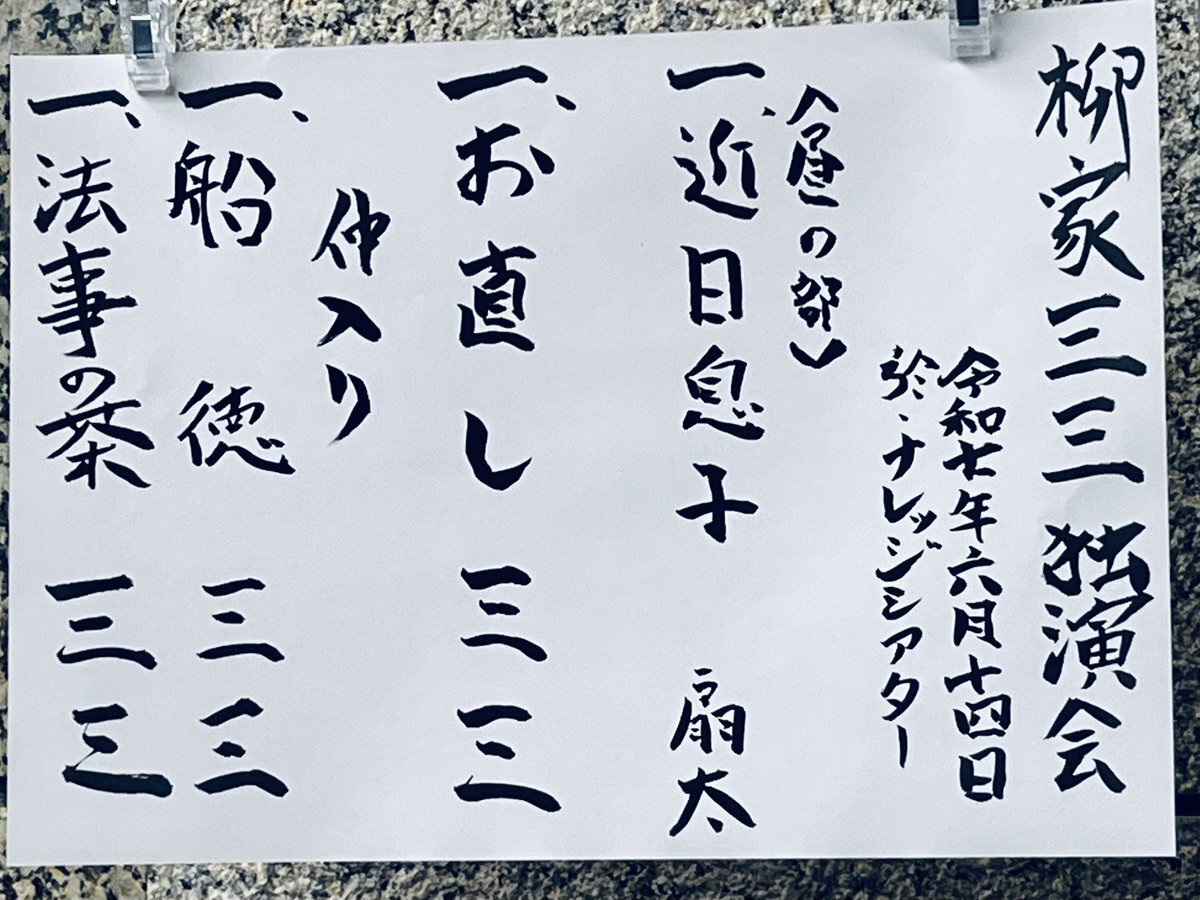 柳家三三 独演会
令和七年六月十四日
於・ナレッジシアター
〈昼の部〉
一、近日息子 扇太
一、お直し 三三
仲入り
一、船徳 三三
一、法事の茶 三三